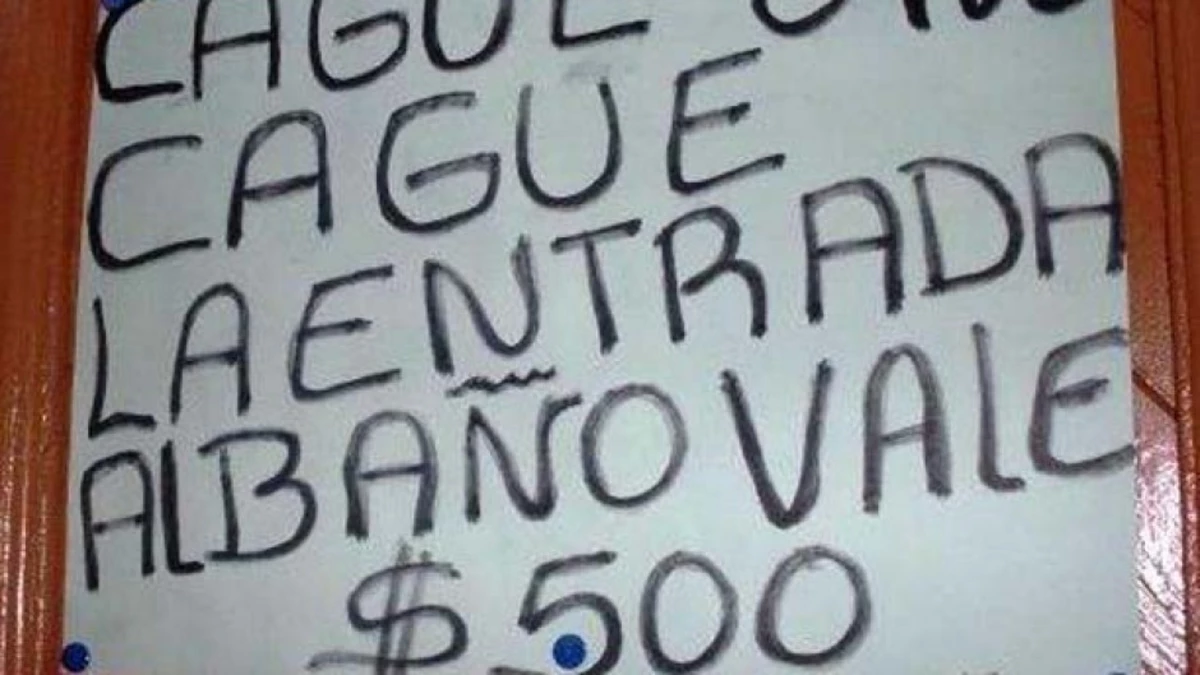 CAGUE O NO
CAGUE
LA ENTRADA
AL BAÑO VALE
$ 500